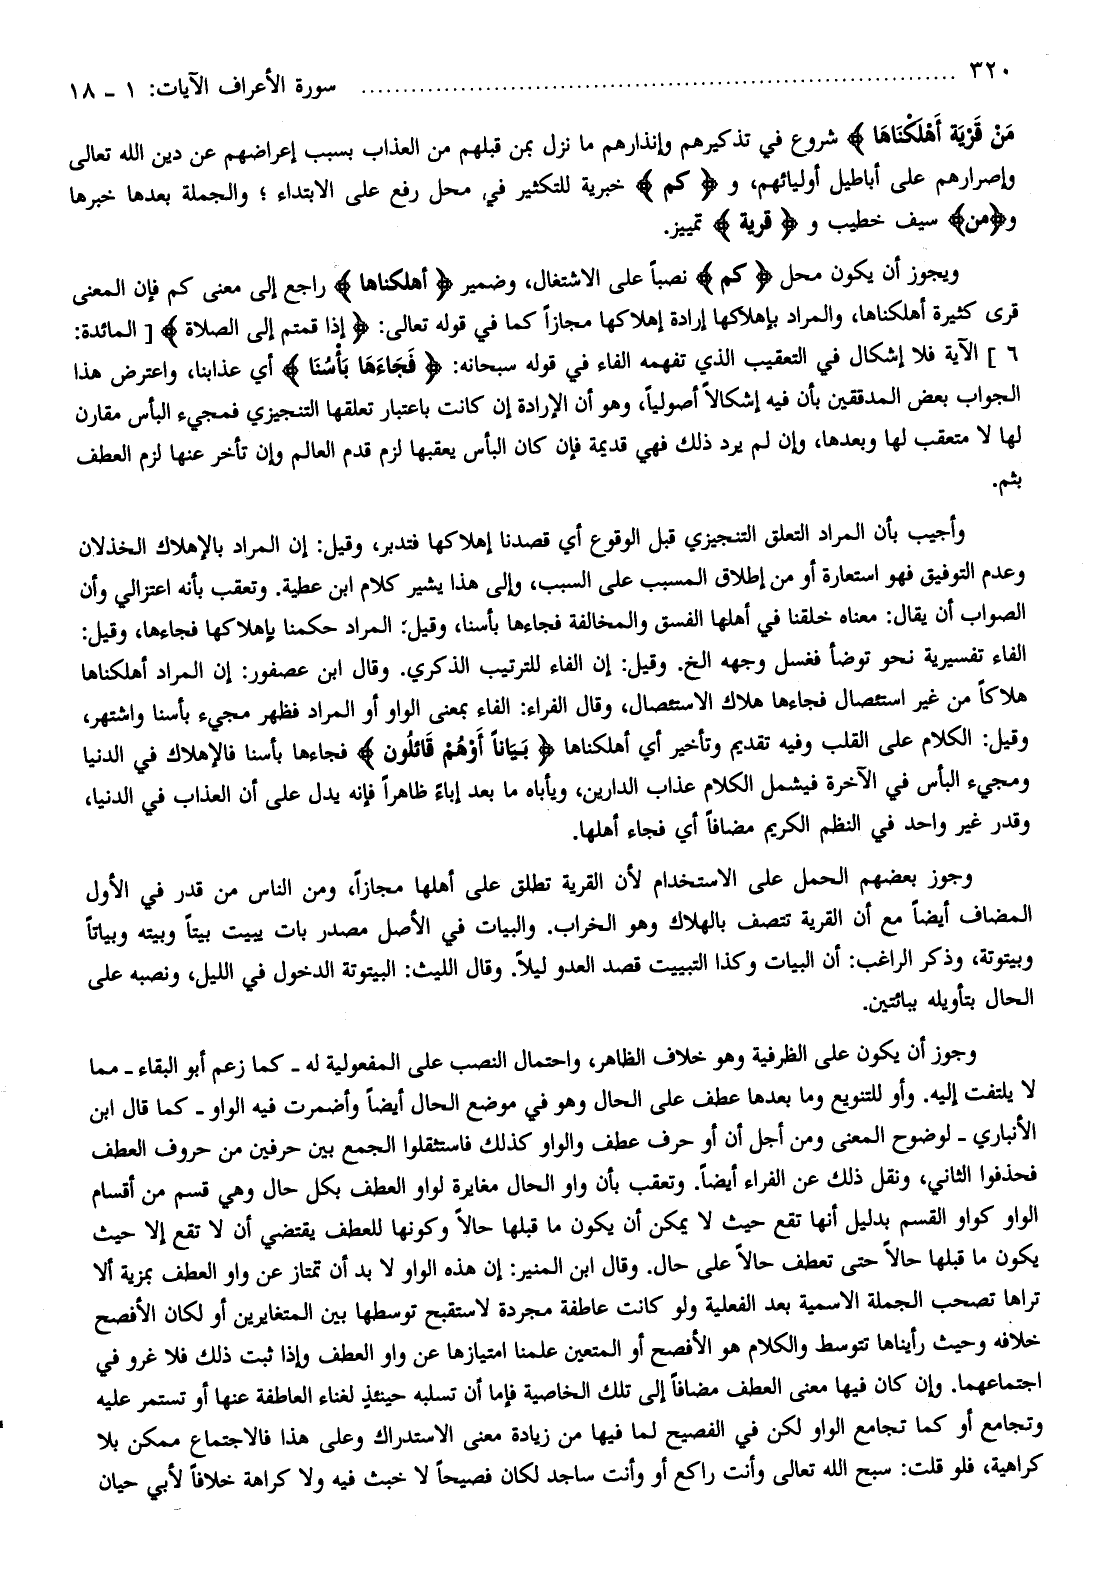 ٣٢٠ ........................................................................ سورة الأعراف الآيات: ١ - ١٨
مَنْ قَرْيَة أَهْلَكْنَاهَا ﴾ شروع في تذكيرهم وإنذارهم ما نزل بمن قبلهم من العذاب بسبب إعراضهم عن دين الله تعالى
وإصرارهم على أباطيل أوليائهم، و ﴿ كم ﴾ خبرية للتكثير في محل رفع على الابتداء ؛ والجملة بعدها خبرها
و﴿من﴾ سيف خطيب و ﴿ قرية ﴾ تمييز.
ويجوز أن يكون محل ﴿ كم ﴾ نصباً على الاشتغال، وضمير ﴿ أهلكناها ﴾ راجع إلى معنى كم فإن المعنى
قرى كثيرة أهلكناها، والمراد بإهلاكها إرادة إهلاكها مجازاً كما في قوله تعالى: ﴿ إذا قمتم إلى الصلاة ﴾ [ المائدة:
٦ ] الآية فلا إشكال في التعقيب الذي تفهمه الفاء في قوله سبحانه: ﴿ فَجَاءَهَا بَأْسُنَا ﴾ أي عذابنا، واعترض هذا
الجواب بعض المدققين بأن فيه إشكالاً أصولياً، وهو أن الإرادة إن كانت باعتبار تعلقها التنجيزي فمجيء البأس مقارن
لها لا متعقب لها وبعدها، وإن لم يرد ذلك فهي قديمة فإن كان البأس يعقبها لزم قدم العالم وإن تأخر عنها لزم العطف
بثم.
وأجيب بأن المراد التعلق التنجيزي قبل الوقوع أي قصدنا إهلاكها فتدبر، وقيل: إن المراد بالإهلاك الخذلان
وعدم التوفيق فهو استعارة أو من إطلاق المسبب على السبب، وإلى هذا يشير كلام ابن عطية. وتعقب بأنه اعتزالي وأن
الصواب أن يقال: معناه خلقنا في أهلها الفسق والمخالفة فجاءها بأسنا، وقيل: المراد حكمنا بإهلاكها فجاءها، وقيل:
الفاء تفسيرية نحو توضأ فغسل وجهه الخ. وقيل: إن الفاء للترتيب الذكري. وقال ابن عصفور: إن المراد أهلكناها
هلاكاً من غير استئصال فجاءها هلاك الاستئصال، وقال الفراء: الفاء بمعنى الواو أو المراد فظهر مجيء بأسنا واشتهر،
وقيل: الكلام على القلب وفيه تقديم وتأخير أي أهلكناها ﴿ بَيَاتاً أَوْهُمْ قَائلُون ﴾ فجاءها بأسنا فالإهلاك في الدنيا
ومجيء البأس في الآخرة فيشمل الكلام عذاب الدارين، ويأباه ما بعد إباءً ظاهراً فإنه يدل على أن العذاب في الدنيا،
وقدر غير واحد في النظم الكريم مضافاً أي فجاء أهلها.
وجوز بعضهم الحمل على الاستخدام لأن القرية تطلق على أهلها مجازاً، ومن الناس من قدر في الأول
المضاف أيضاً مع أن القرية تتصف بالهلاك وهو الخراب. والبيات في الأصل مصدر بات يبيت بيتاً وبيته وبياتاً
وبيتوتة، وذكر الراغب: أن البيات وكذا التبييت قصد العدو ليلاً. وقال الليث: البيتوتة الدخول في الليل، ونصبه على
الحال بتأويله ببائتين.
وجوز أن يكون على الظرفية وهو خلاف الظاهر، واحتمال النصب على المفعولية له - كما زعم أبو البقاء - مما
لا يلتفت إليه. وأو للتنويع وما بعدها عطف على الحال وهو في موضع الحال أيضاً وأضمرت فيه الواو - كما قال ابن
الأنباري - لوضوح المعنى ومن أجل أن أو حرف عطف والواو كذلك فاستثقلوا الجمع بين حرفين من حروف العطف
فحذفوا الثاني، ونقل ذلك عن الفراء أيضاً. وتعقب بأن واو الحال مغايرة لواو العطف بكل حال وهي قسم من أقسام
الواو كواو القسم بدليل أنها تقع حيث لا يمكن أن يكون ما قبلها حالاً وكونها للعطف يقتضي أن لا تقع إلا حيث
يكون ما قبلها حالاً حتى تعطف حالاً على حال. وقال ابن المنير: إن هذه الواو لا بد أن تمتاز عن واو العطف بمزية ألا
تراها تصحب الجملة الاسمية بعد الفعلية ولو كانت عاطفة مجردة لاستقبح توسطها بين المتغايرين أو لكان الأفصح
خلافه وحيث رأيناها تتوسط والكلام هو الأفصح أو المتعين علمنا امتيازها عن واو العطف وإذا ثبت ذلك فلا غرو في
اجتماعهما. وإن كان فيها معنى العطف مضافاً إلى تلك الخاصية فإما أن تسلبه حينئذٍ لغناء العاطفة عنها أو تستمر عليه
وتجامع أو كما تجامع الواو لكن في الفصيح لما فيها من زيادة معنى الاستدراك وعلى هذا فالاجتماع ممكن بلا
كراهية، فلو قلت: سبح الله تعالى وأنت راكع أو وأنت ساجد لكان فصيحاً لا خبث فيه ولا كراهة خلافاً لأبي حيان